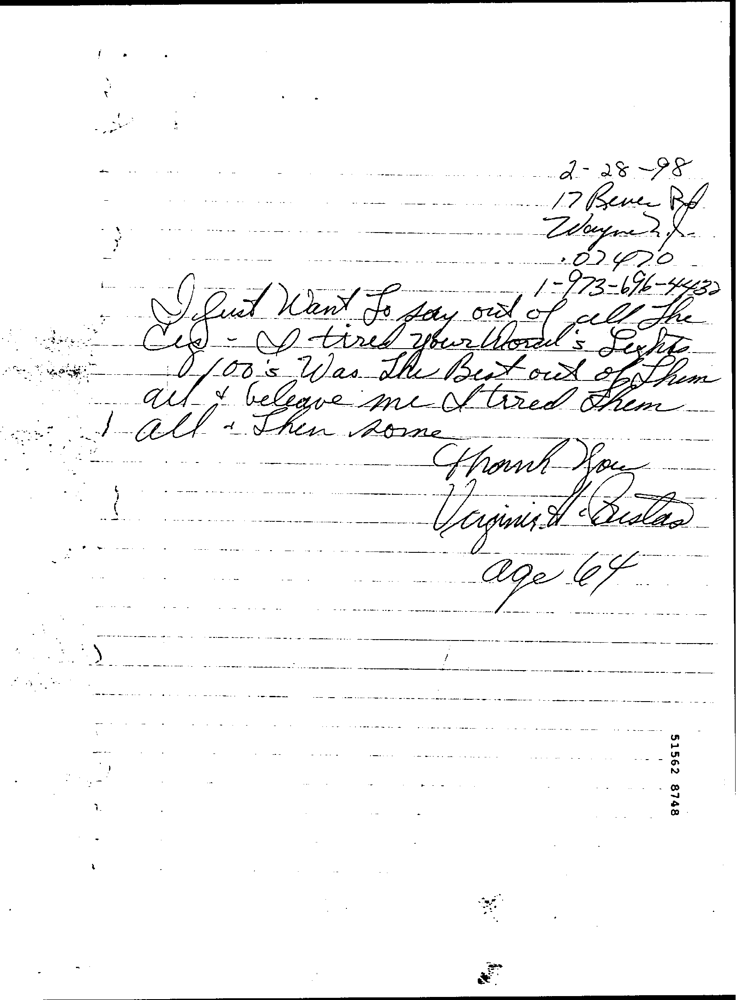 2-28-98
17 Rd
Wayne N.J.
07470
1-973-696-4432
I Just Want To say out of all The
Cig - I tired your
100's Was The Best out of Them
all & beleave me I tired Them
all & Then some
Thank You
age 64
51562 8748